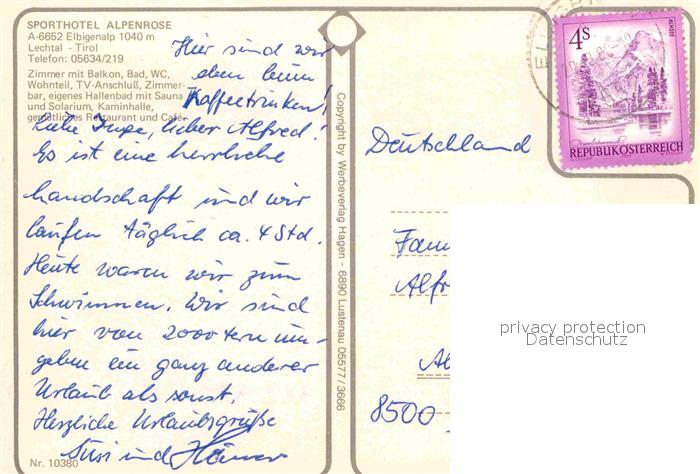 SPORTHOTEL ALPENROSE
A-6652 Elbigenalp 1040 m
Lechtal - Tirol
Telefon: 05634/219
Zimmer mit Balkon, Bad, WC,
Wohnteil, TV-Anschluß, Zimmer-
bar, eigenes Hallenbad mit Sauna
und Solarium, Kaminhalle,
gemütliches Restaurant und Café.
Hier sind wir
eben beim
Kaffeetrinken!
Liebe Inge, lieber Alfred!
Es ist eine herrliche
Landschaft und wir
laufen täglich ca. 4 Std.
Heute waren wir zum
Schwimmen. Wir sind
hier von 2000tern um-
geben ein ganz anderer
Urlaub als sonst.
Herzliche Urlaubsgrüße
Susi und
Nr. 10380
Copyright by Werbeverlag Hagen - 6890 Lustenau 05577/3666
4S
ALMSEE
REPUBLIK ÖSTERREICH
Deutschland
Fam
Alfr
8500
privacy protection
Datenschutz